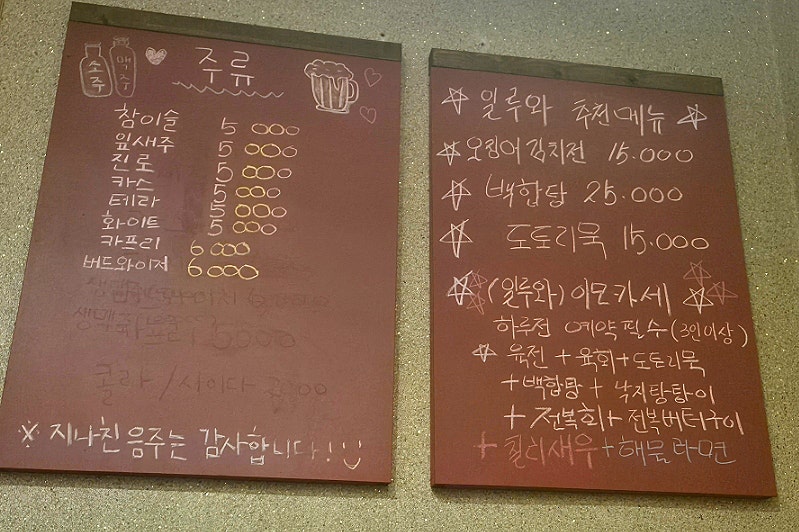 소주
맥주
주류
참이슬 5000
잎새주 5000
진로 5000
카스 5000
테라 5000
화이트 5000
카프리 6000
버드와이저 6000
콜라 / 사이다
※ 지나친 음주는 감사합니다!
일루와 추천메뉴
오징어김치전 15.000
백합탕 25.000
도토리묵 15.000
(일루와) 이모카세
하루전 예약필수(3인이상)
육전 + 육회 + 도토리묵
+ 백합탕 + 낙지탕탕이
+ 전복회 + 전복버터구이
+ 칠리새우 + 해물라면